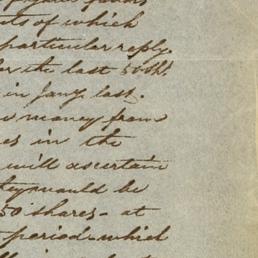 favors
of which
particular reply.
for the last 50 sh.
in Jany. last.
money from
in the
will ascertain
would be
50 shares - at
period - which